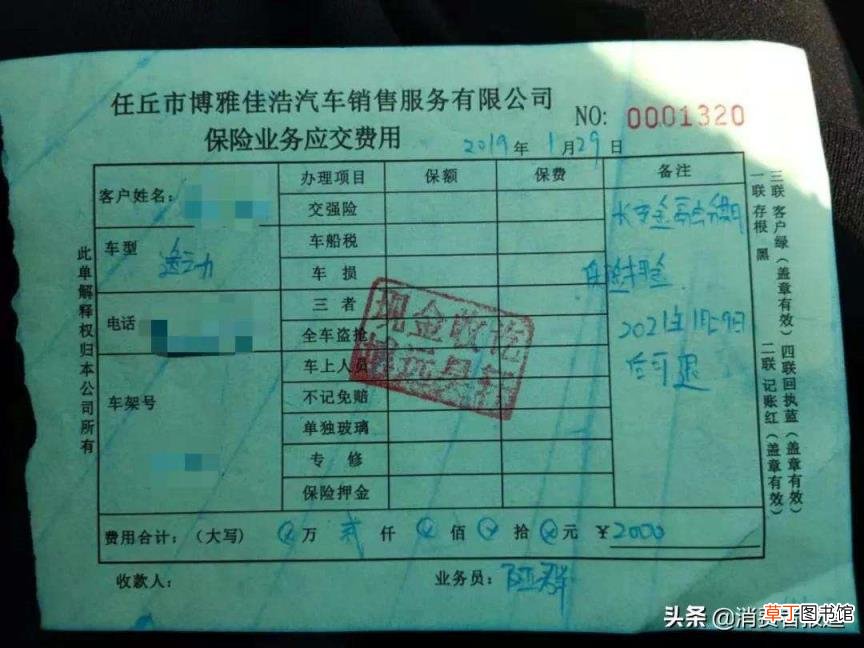 任丘市博雅佳浩汽车销售服务有限公司
NO: 0001320
保险业务应交费用
2019年1月29日
客户姓名:
办理项目 保额 保费 备注
交强险
车船税
车型 逸动
车损
三者
电话
全车盗抢
车上人员
车架号
不记免赔
单独玻璃
专修
保险押金
长安金融
保险押金
2021年1月29日
后可退
现金收讫
费用合计:(大写) 万 贰 仟 佰 拾 元 ¥2000
收款人:
业务员:
此单解释权归本公司所有
一联 存根 黑
二联 记账红(盖章有效)
三联 客户绿(盖章有效)
四联回执蓝(盖章有效)
头条 @消费者报道
草丁图书馆